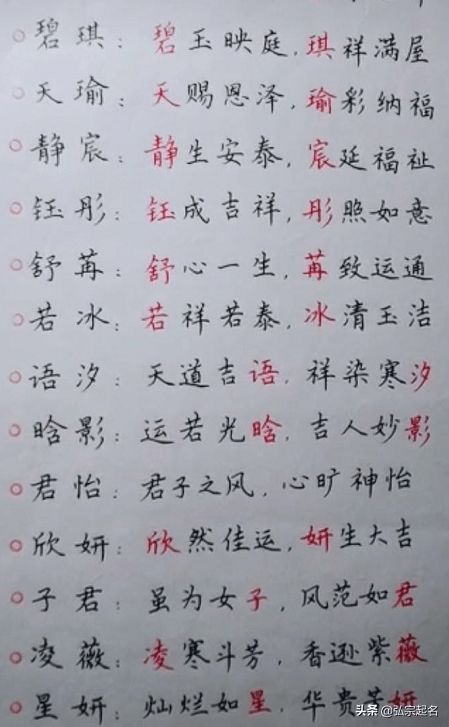 碧琪：碧玉映庭，琪祥满屋
天瑜：天赐恩泽，瑜彩纳福
静宸：静生安泰，宸延福祉
钰彤：钰成吉祥，彤照如意
舒苒：舒心一生，苒致运通
若冰：若祥若泰，冰清玉洁
语汐：天道吉语，祥染寒汐
晗影：运若光晗，吉人妙影
君怡：君子之风，心旷神怡
欣妍：欣然佳运，妍生大吉
子君：虽为女子，风范如君
凌薇：凌寒斗芳，香逊紫薇
星妍：灿烂如星，华贵若妍
头条 @弘宗起名